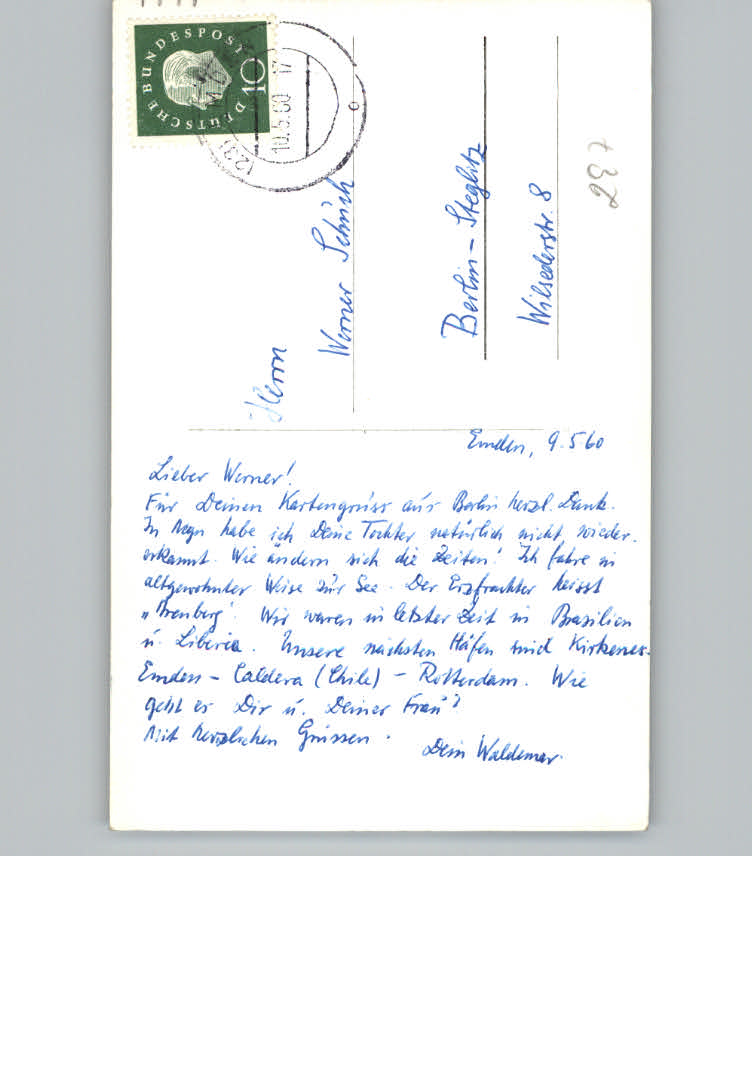 DEUTSCHE BUNDESPOST
10
(23)
10.5.60 17
Herrn
Werner Schüch
Berlin - Steglitz
Wilsederstr. 8
Emden, 9.5.60
Lieber Werner!
Für Deinen Kartengruss aus Berlin herzl. Dank.
In habe ich Deine Tochter natürlich nicht wieder-
erkannt. Wie ändern sich die Zeiten! Ich fahre in
altgewohnter Weise zur See. Der Erzfrachter heisst
„Arenberg". Wir waren in letzter Zeit in Brasilien
u. Liberia. Unsere nächsten Häfen sind Kirkenes-
Emden - Caldera (Chile) - Rotterdam. Wie
geht es Dir u. Deiner Frau?
Mit herzlichen Grüssen.
Dein Waldemar.